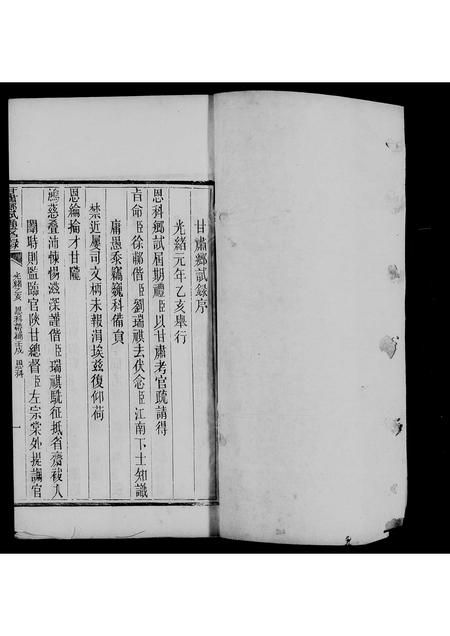 甘肅鄉試錄序
光緒元年乙亥舉行
恩科鄉試屆期禮臣以甘肅考官疏請得
旨命臣徐郙偕臣劉瑞祺去伏念臣江南下士知識
庸愚忝竊巍科備員
禁近屢司文柄未報涓埃茲復仰荷
恩綸掄才甘隴
鴻慈疊沛悚惕滋深謹偕臣瑞祺馳征抵省齋祓入
闈時則監臨官陝甘總督臣左宗棠外提調官
光緒乙亥 恩科帶補壬戌 恩科
一